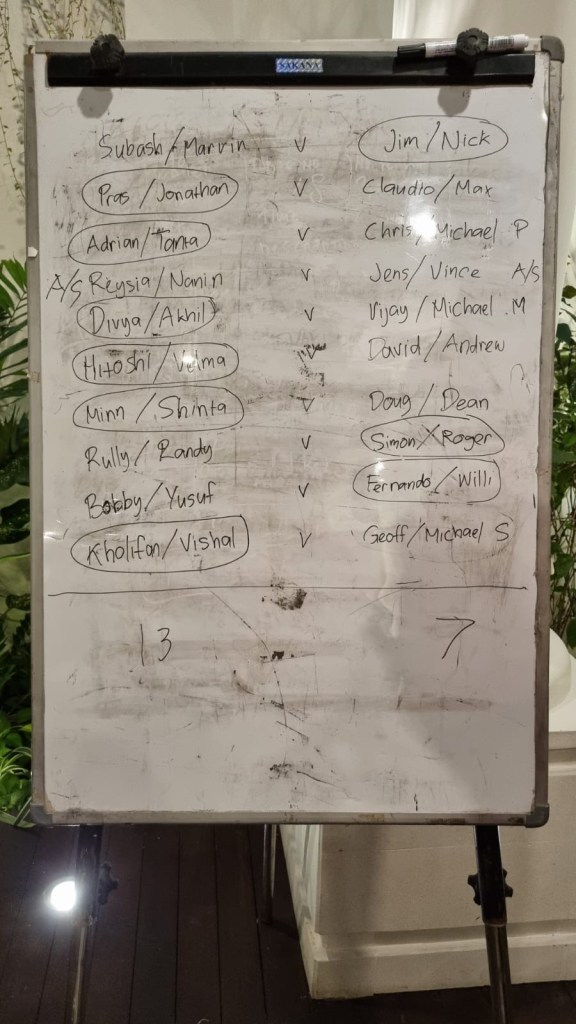 SAKANA
Subash/Marvin V Jim/Nick
Pras/Jonathan V Claudio/Max
Adrian/Tanta V Chris/Michael P
A/S Reysia/Nanin V Jens/Vince A/S
Divya/Akhil V Vijay/Michael .M
Hitoshi/Velma V David/Andrew
Minn/Shinta V Doug/Dean
Rully/Randy V Simon/Roger
Bobby/Yusuf V Fernando/Willi
Kholifan/Vishal V Geoff/Michael S
13 7